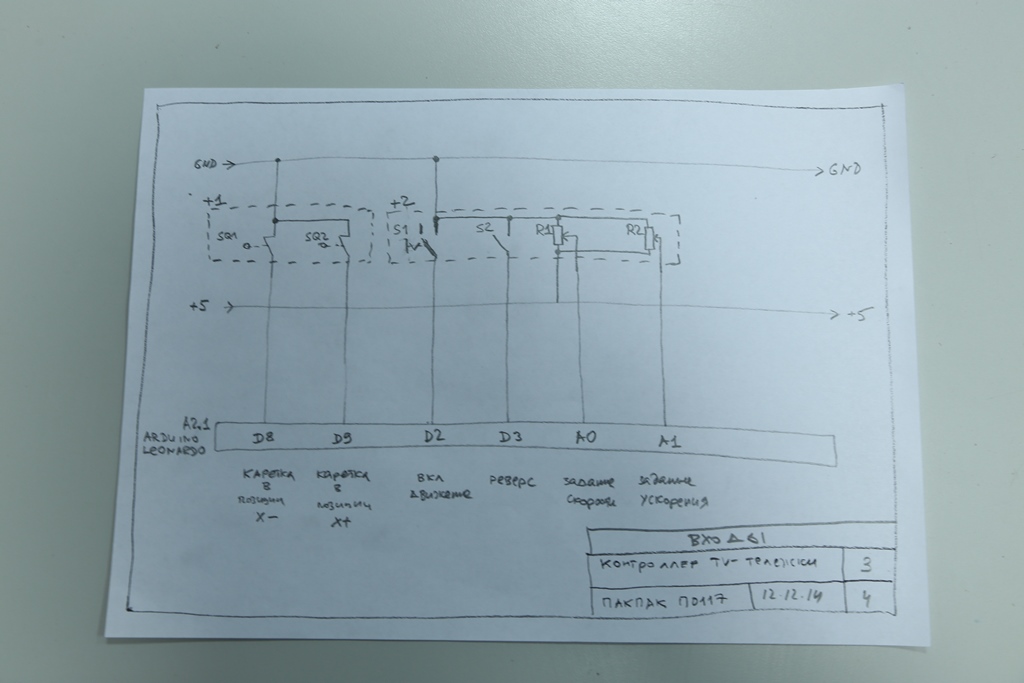 GND
GND
+1
+2
SQ1
SQ2
S1
S2
R1
R2
+5
+5
A2.1
ARDUINO
LEONARDO
D8
D9
D2
D3
A0
A1
КАРЕТКА
В
ПОЗИЦИИ
X-
КАРЕТКА
В
ПОЗИЦИИ
X+
ВКЛ
ДВИЖЕНИЕ
РЕВЕРС
ЗАДАНИЕ
СКОРОСТИ
ЗАДАНИЕ
УСКОРЕНИЯ
ВХОДЫ
КОНТРОЛЛЕР TV-ТЕЛЕЖКИ
3
ПАКПАК П0117
12.12.14
4